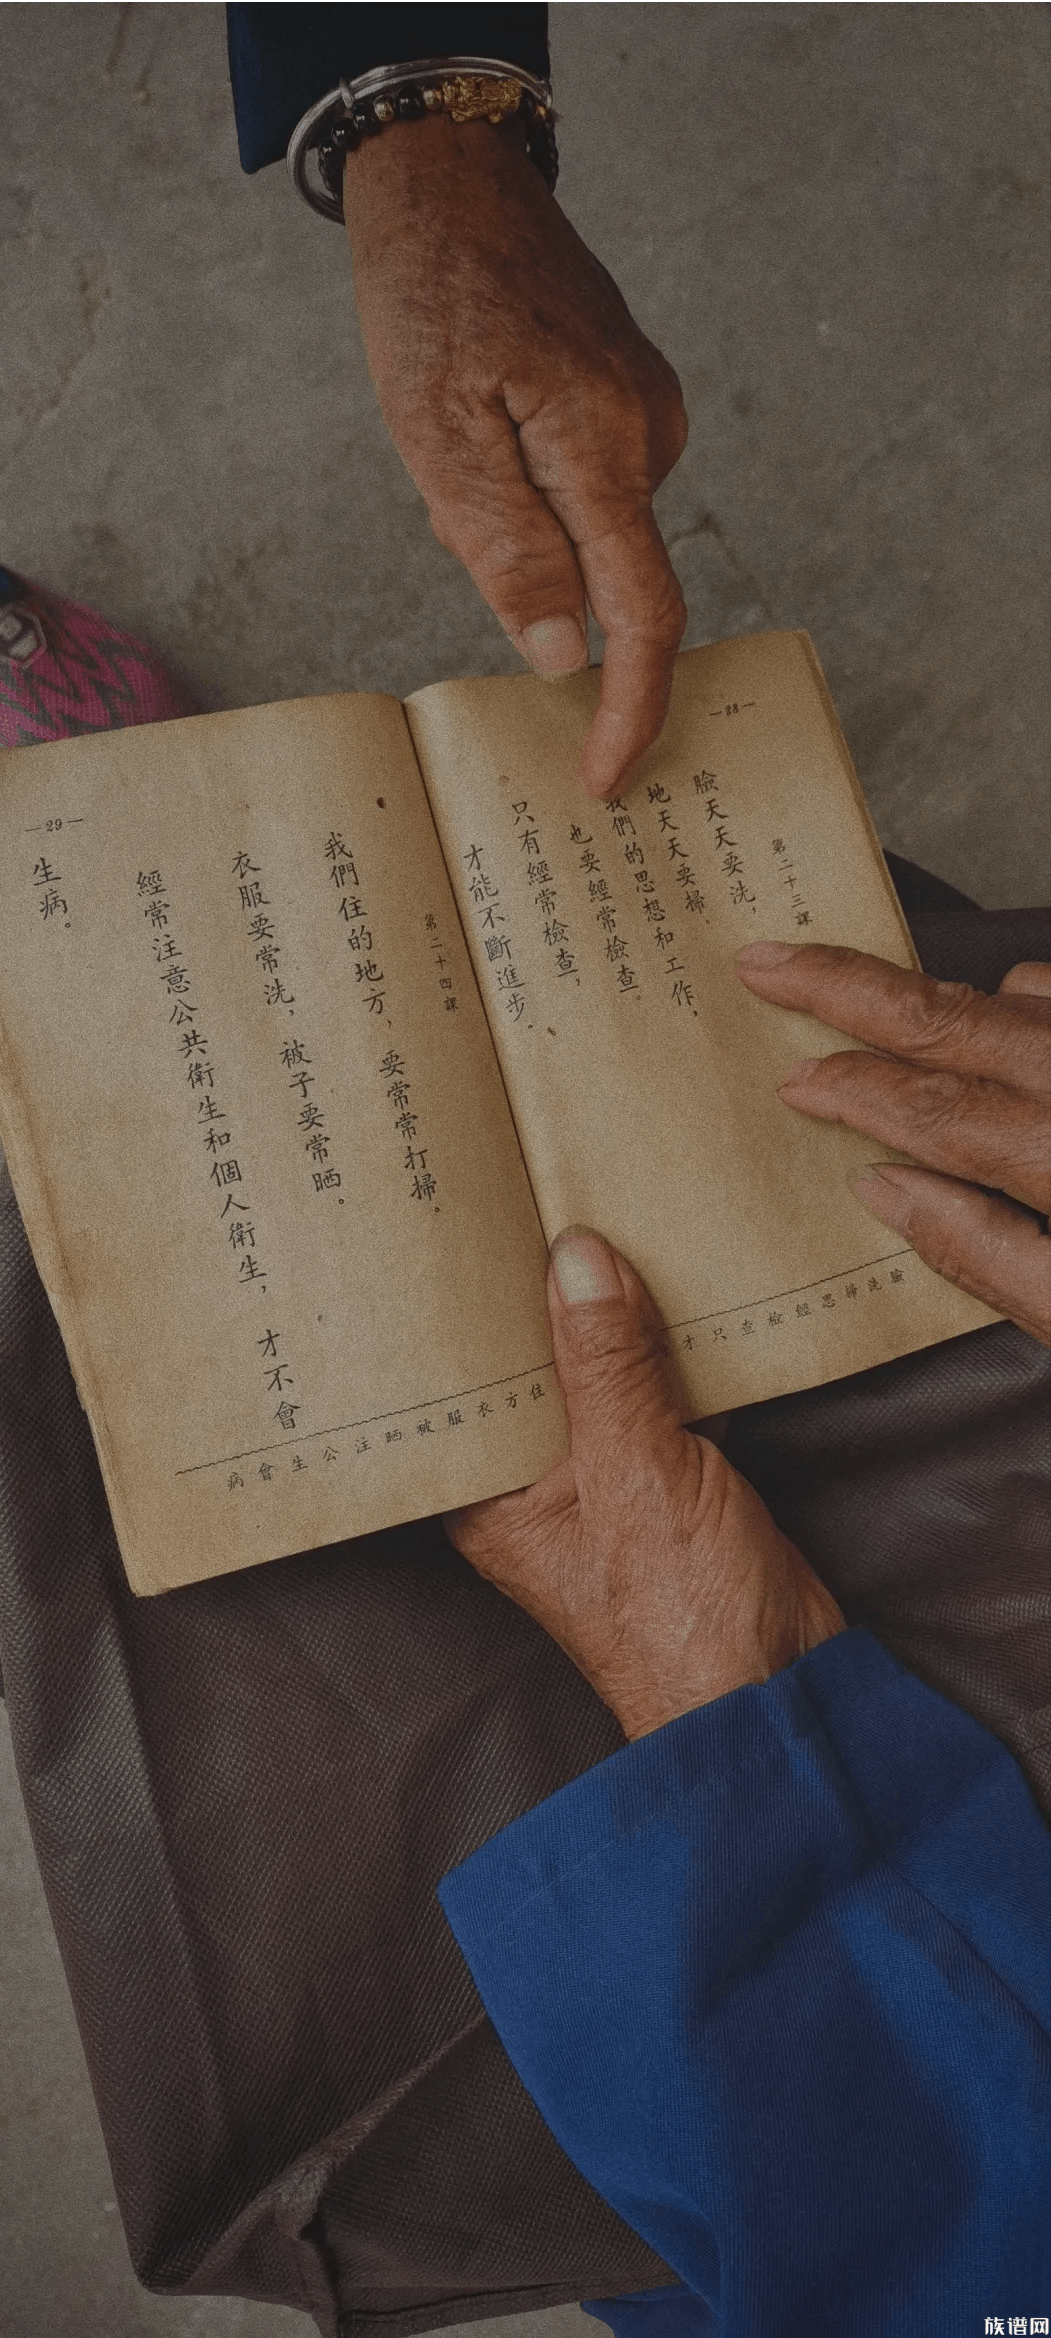 —28—
第二十三課
臉天天要洗，
地天天要掃。
我們的思想和工作，
也要經常檢查。
只有經常檢查，
才能不斷進步。
臉洗掃思經檢查只才
—29—
第二十四課
我們住的地方，要常常打掃。
衣服要常洗，被子要常晒。
經常注意公共衛生和個人衛生，才不會
生病。
住方衣服被晒注公生會病
族谱网